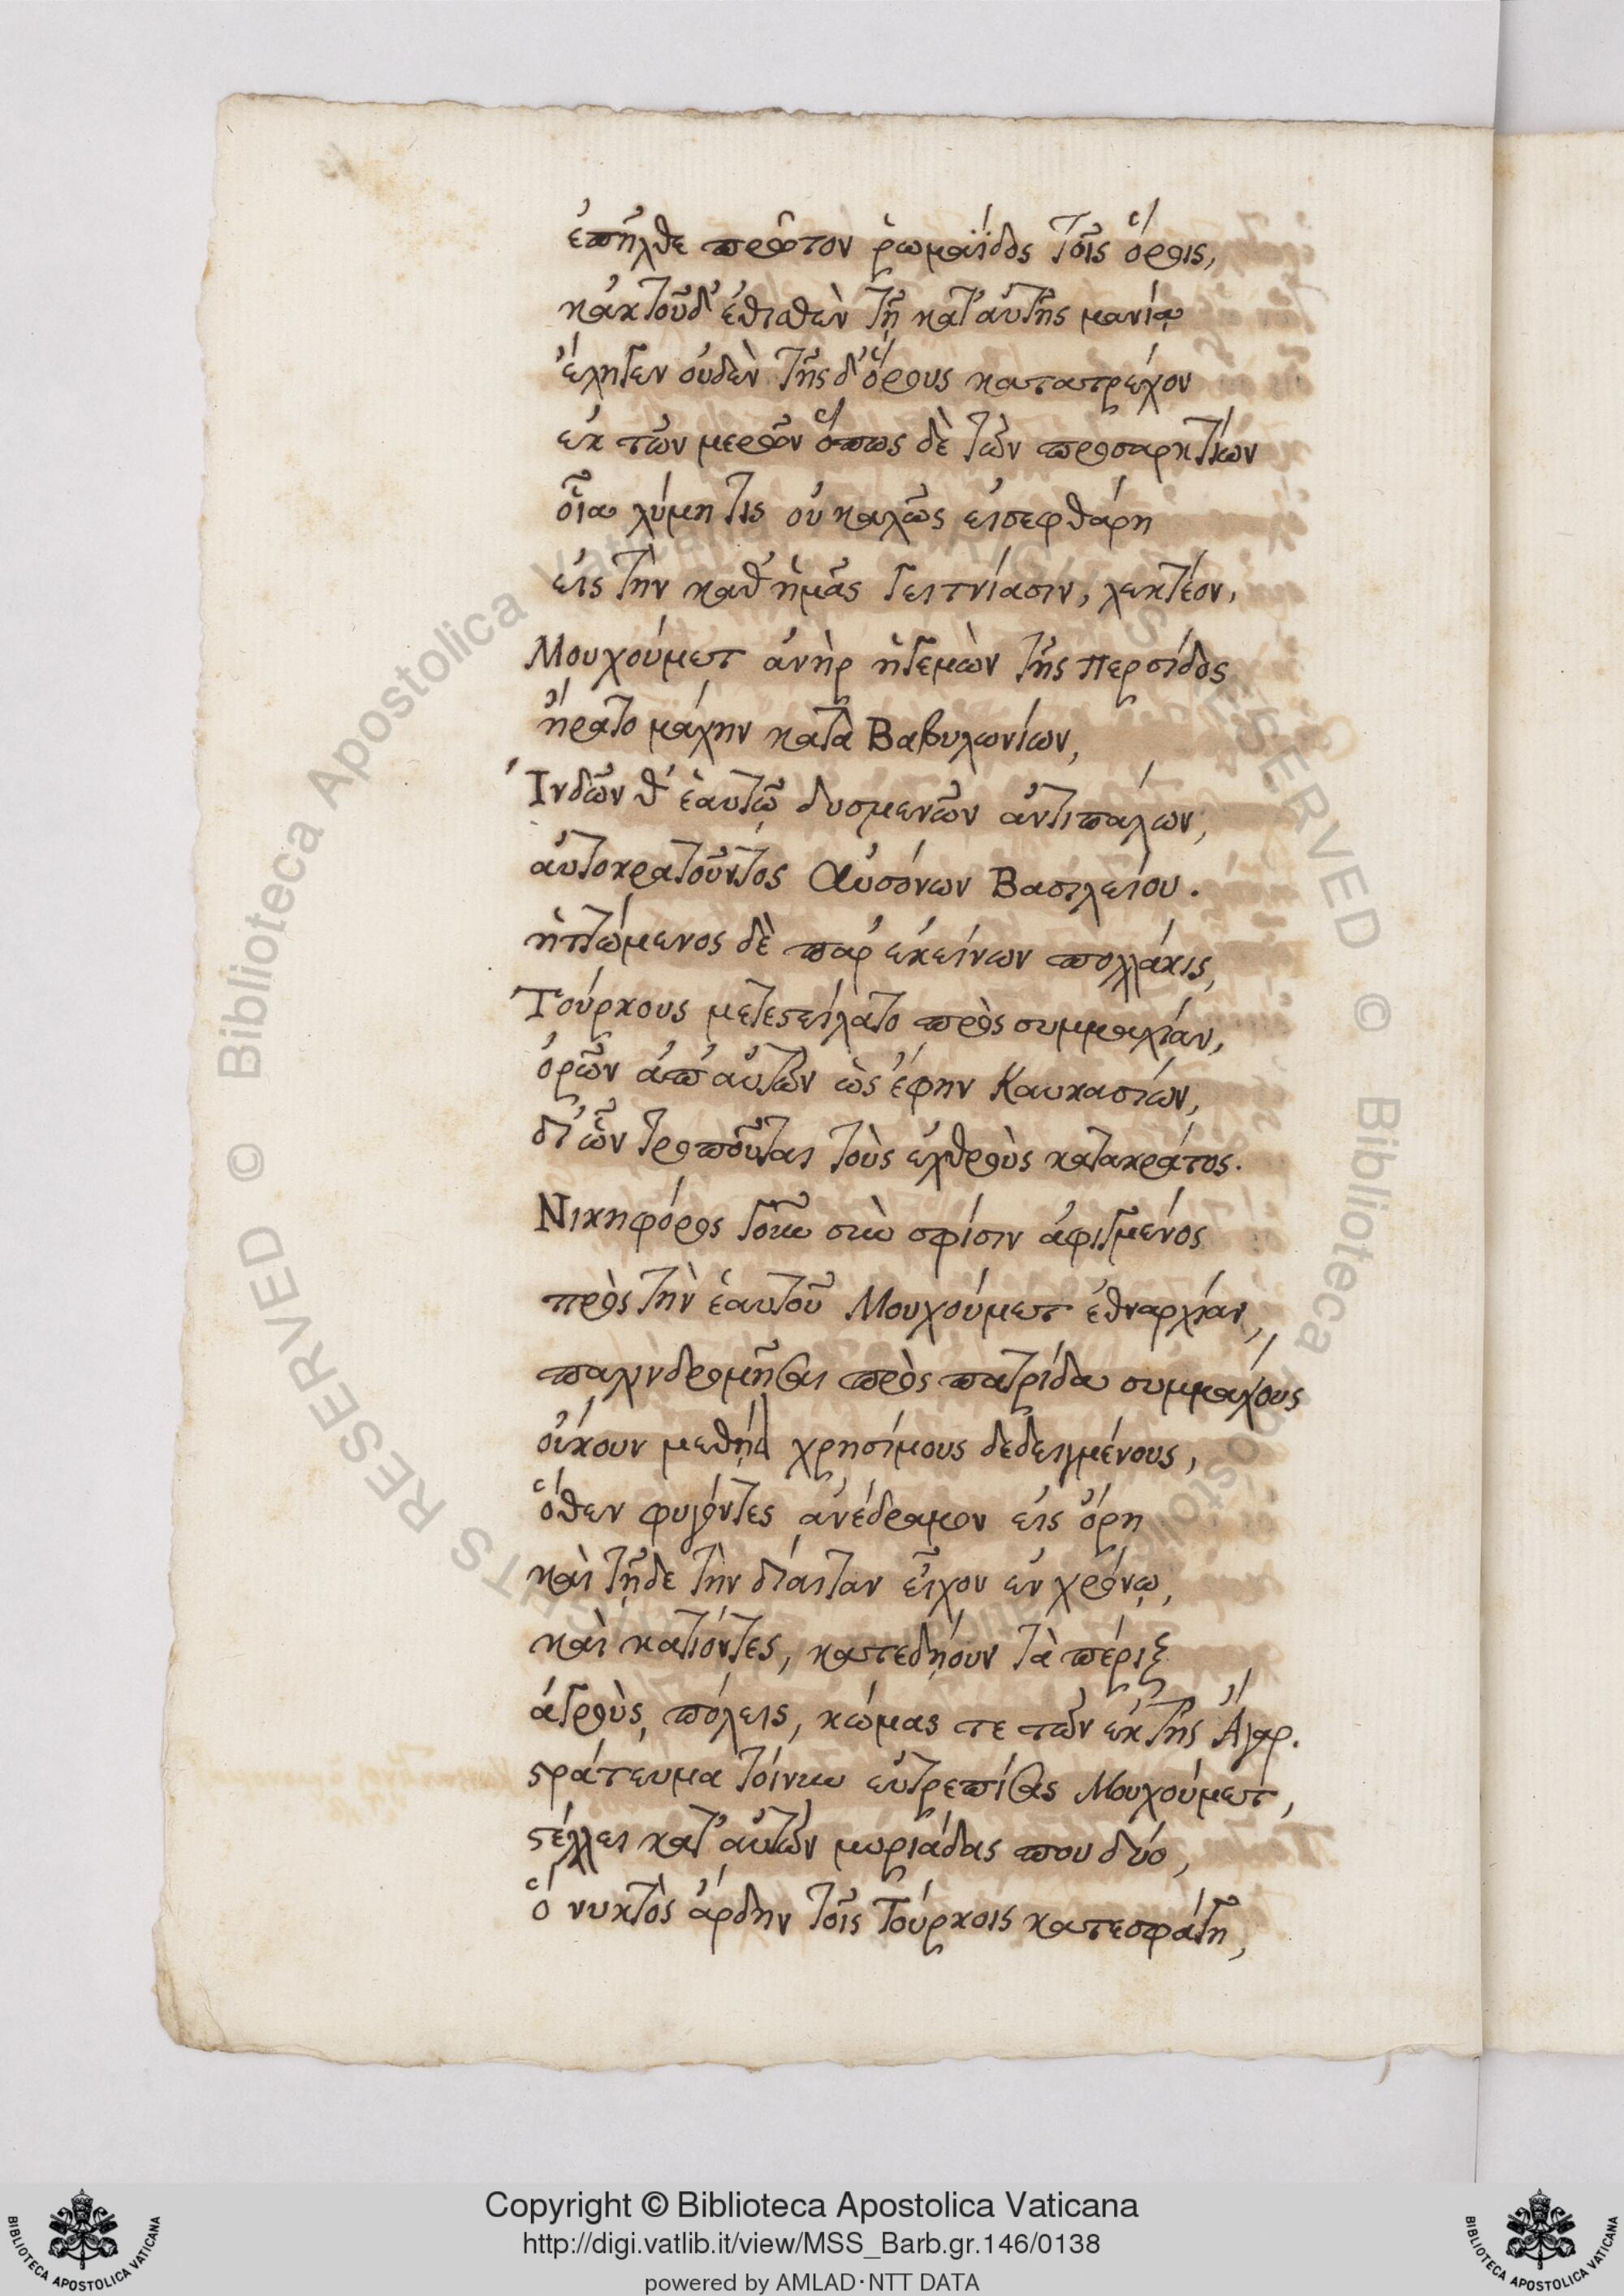 ἐπῆλθε πρῶτον ῥωμαΐδος τοῖς ὅροις,
κἀκ τοῦδ' ἐθισθὲν τῇ κατ' αὐτῆς μανίᾳ
ἔληγεν οὐδὲν τῆσδ' ὅρους κατατρέχον
ἐκ τῶν μερῶν ὅπως δὲ τῶν προσαρκτίων
οἷα λύμη τις οὐ καλῶς εἰσεφθάρη
εἰς τὴν καθ' ἡμᾶς γειτνίασιν, λεκτέον,
Μουχούμετ ἀνὴρ ἡγεμὼν τῆς περσίδος
ἤρατο μάχην κατὰ Βαβυλωνίων,
Ἰνδῶν θ' ἑαυτῷ δυσμενῶν ἀντιπάλων,
αὐτοκρατοῦντος Αὐσόνων Βασιλείου.
ἡττώμενος δὲ παρ' ἐκείνων πολλάκις,
Τούρκους μετεστείλατο πρὸς συμμαχίαν,
ὀρῶν ἀπ' αὐτῶν ὡς ἔφην Καυκασίων,
δι' ὧν τροποῦται τοὺς ἐχθροὺς κατακράτος.
Νικηφόρος γοῦν σὺν σφίσιν ἀφιγμένος
πρὸς τὴν ἑαυτοῦ Μουχούμετ ἐθναρχίαν,
παλινδρομῆσαι πρὸς πατρίδα συμμάχους
οὔκουν χρησίμους δεδειγμένους,
ὅθεν φυγόντες ἀνέδραμον εἰς ὄρη
καὶ τῇδε τὴν δίαιταν εἶχον ἐν χρόνῳ,
καὶ κατιόντες, κατεδῄουν τὰ πέριξ
ἀγροὺς, πόλεις, κώμας τε τῶν ἐκ τῆς Ἄγαρ.
στράτευμα τοίνυν εὐτρεπίσας Μουχούμετ,
στέλλει κατ' αὐτῶν μυριάδας που δύο,
ὃ νυκτὸς ἄρδην τοῖς Τούρκοις κατεσφάγη,
Copyright © Biblioteca Apostolica Vaticana
http://digi.vatlib.it/view/MSS_Barb.gr.146/0138
powered by AMLAD·NTT DATA